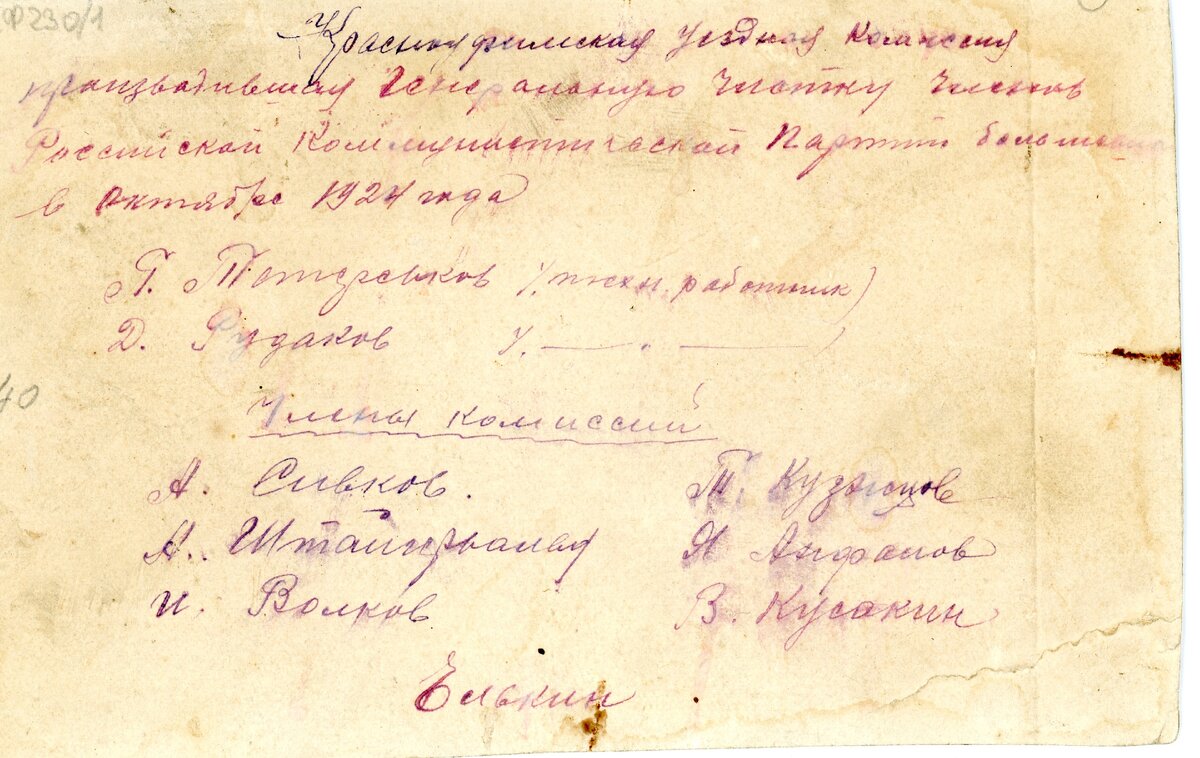 Ф230/1
Красноуфимская уездная Комиссия
производившая Генеральную чистку членов
Российской Коммунистической Партии
в октябре 1924 года
П. (техн. работник)
Д. Рудаков (. — " — )
40
Члены комиссий
А. Сивков. Т. Кузнецов
А. Я Анфалов
И. Волков В. Кусакин
Елькин